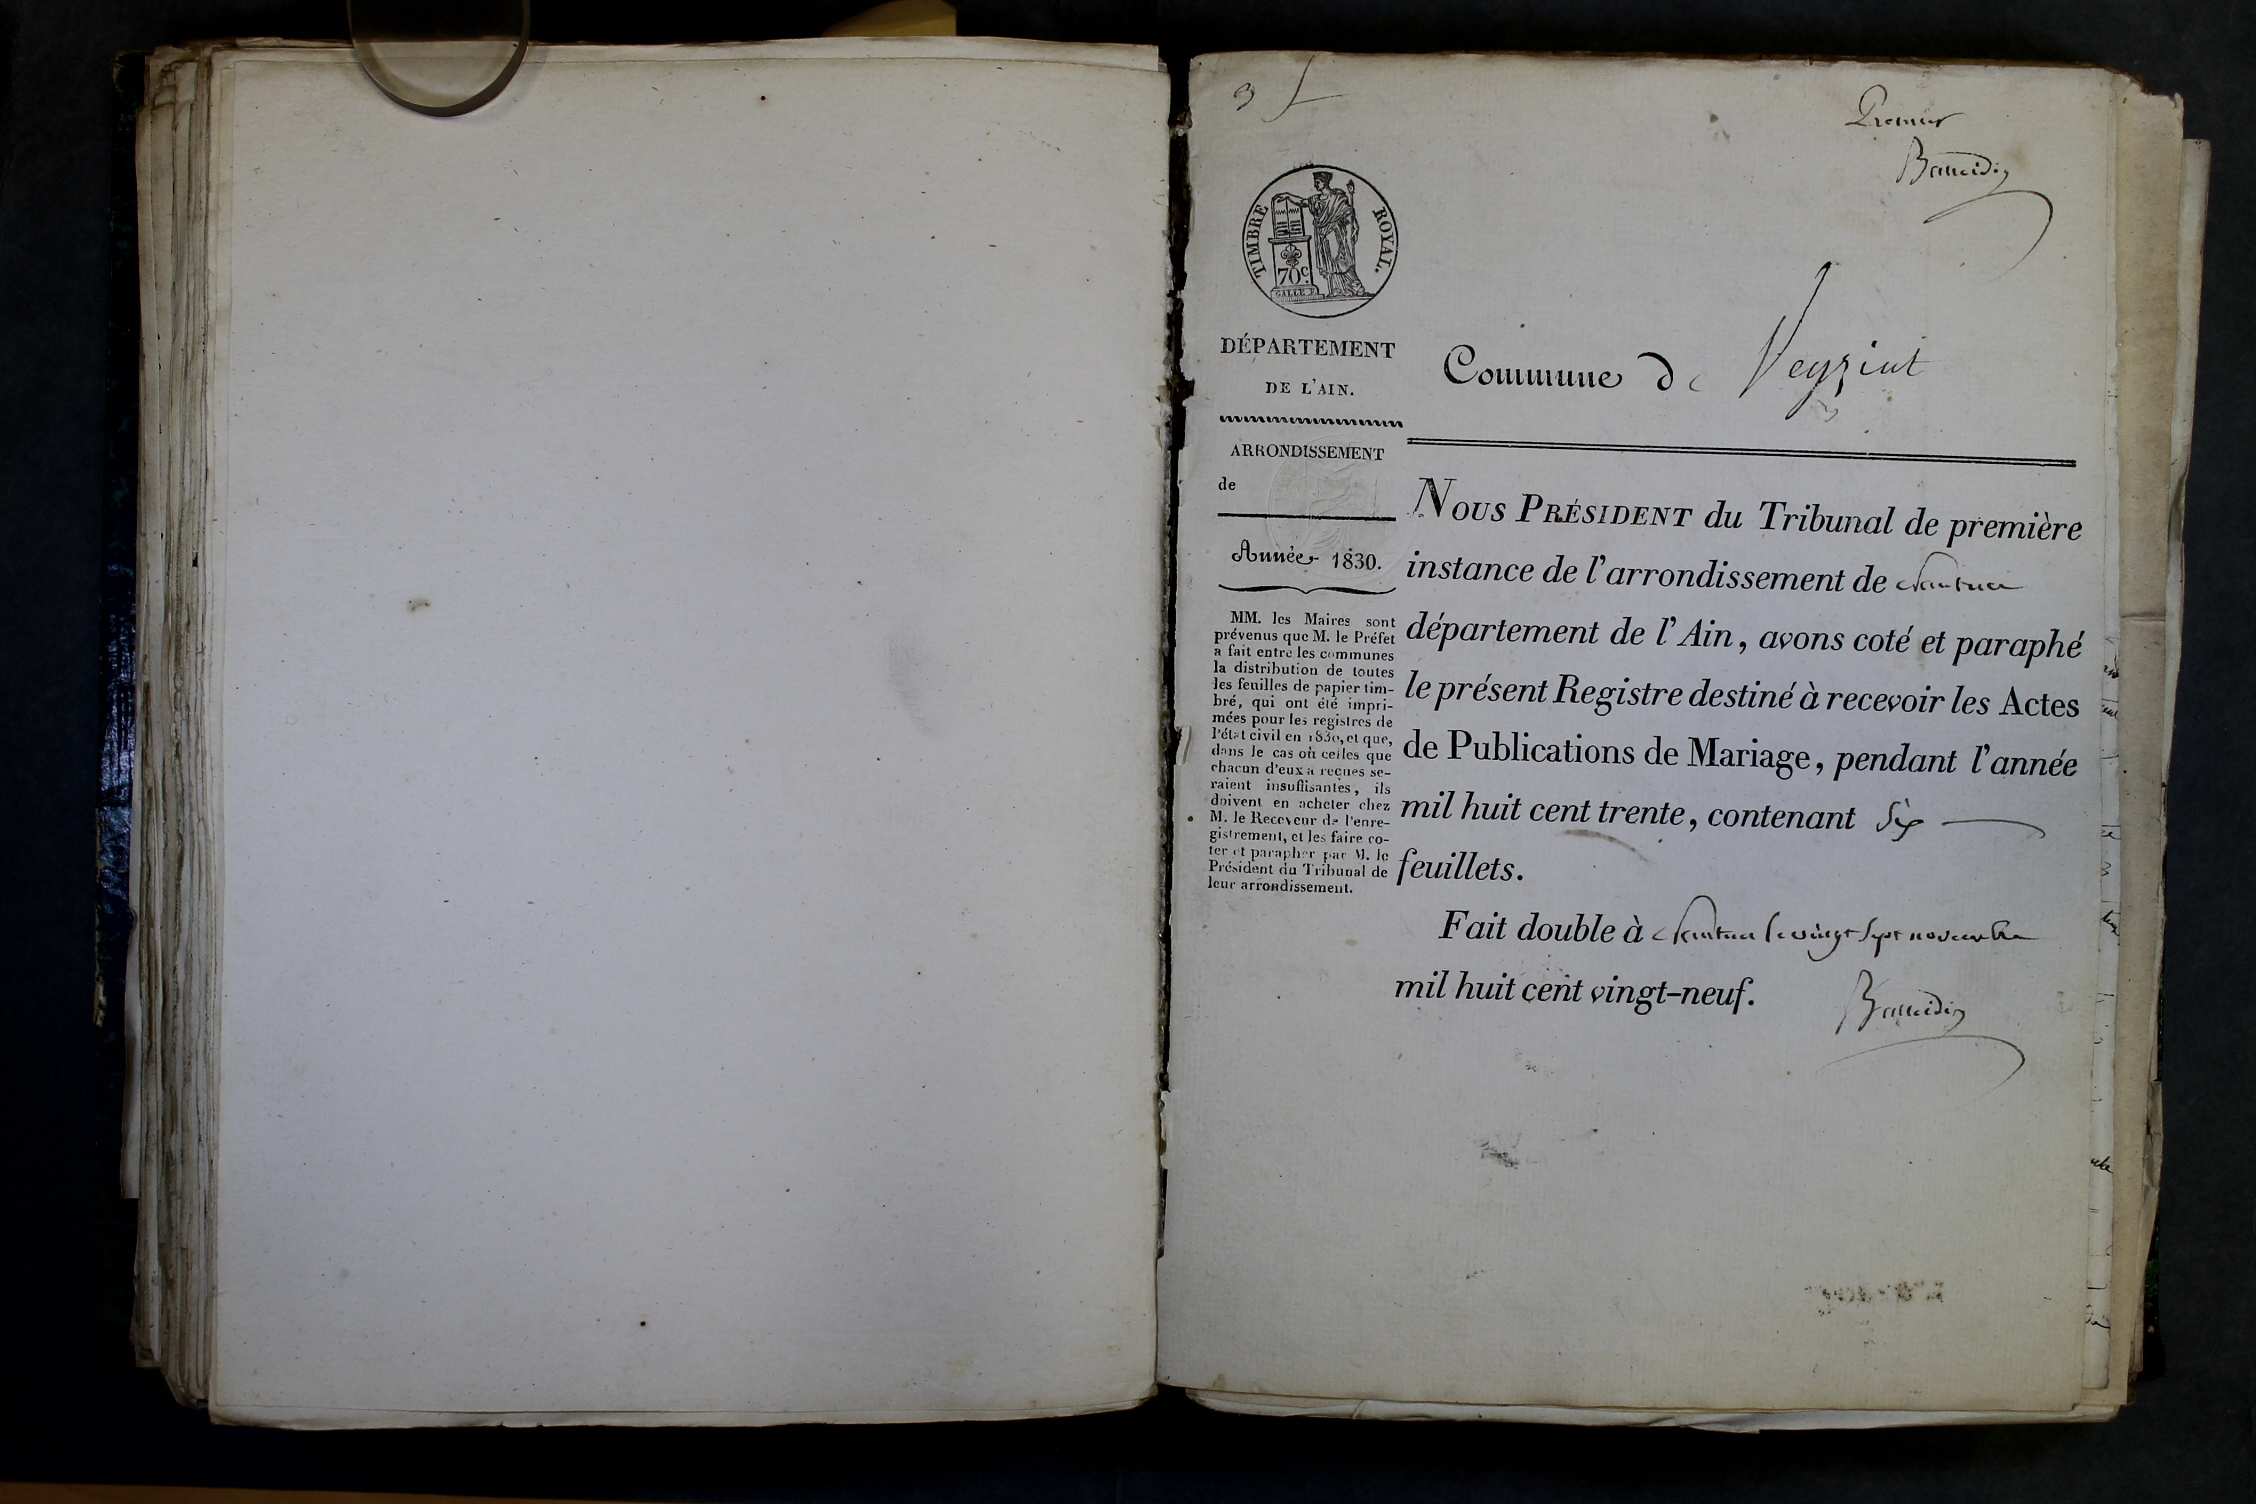 3
Premier
TIMBRE ROYAL.
70 C.
GALLE F.
DÉPARTEMENT
DE L'AIN.
Commune de Veyziat
ARRONDISSEMENT
de
Année 1830.
MM. les Maires sont
prévenus que M. le Préfet
a fait entre les communes
la distribution de toutes
les feuilles de papier tim-
bré, qui ont été impri-
mées pour les registres de
l'état civil en 1830, et que,
dans le cas où celles que
chacun d'eux a reçues se-
raient insuffisantes, ils
doivent en acheter chez
M. le Receveur de l'enre-
gistrement, et les faire co-
ter et parapher par M. le
Président du Tribunal de
leur arrondissement.
NOUS PRÉSIDENT du Tribunal de première
instance de l'arrondissement de Nantua
département de l'Ain, avons coté et paraphé
le présent Registre destiné à recevoir les Actes
de Publications de Mariage, pendant l'année
mil huit cent trente, contenant Six
feuillets.
Fait double à Nantua le vingt sept novembre
mil huit cent vingt-neuf.